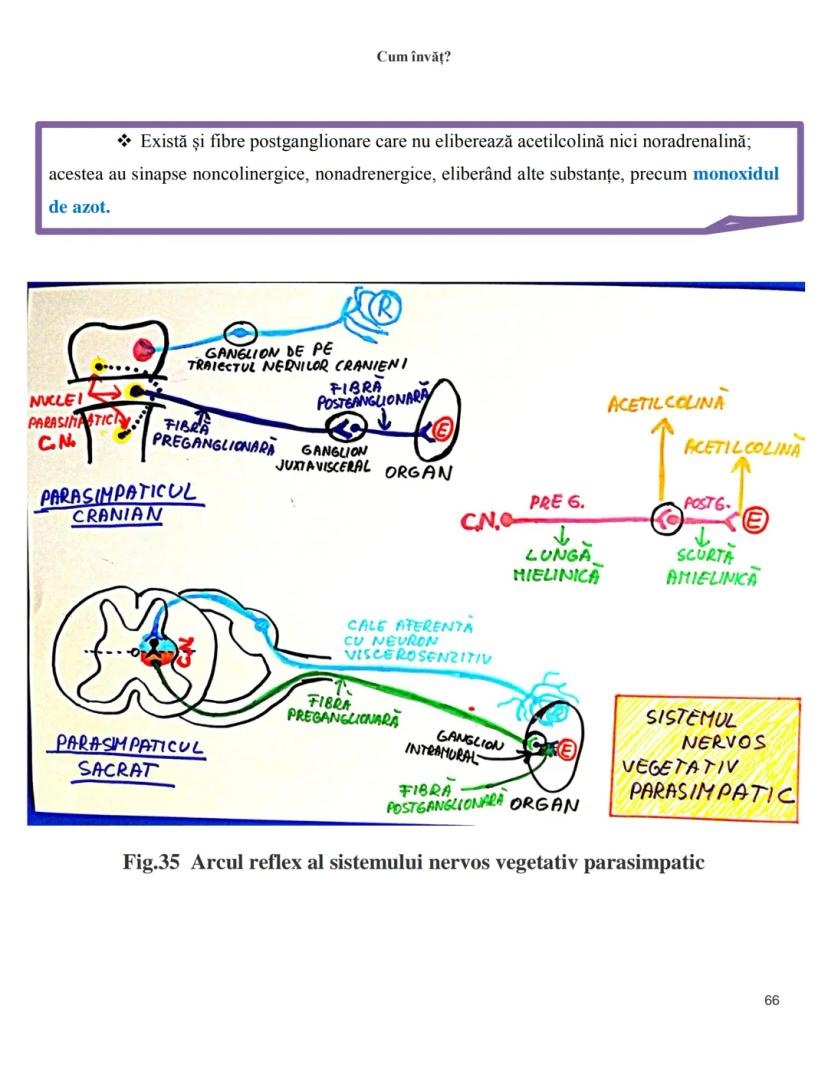 Cum învăț?
❖ Există și fibre postganglionare care nu eliberează acetilcolină nici noradrenalină;
acestea au sinapse noncolinergice, nonadrenergice, eliberând alte substanțe, precum monoxidul
de azot.
R
GANGLION DE PE
TRAIECTUL NERVILOR CRANIENI
NUCLEI
PARASIMPATICI
C.N.
FIBRĂ
PREGANGLIONARĂ
FIBRĂ
POSTGANGLIONARĂ
E
GANGLION
JUXTAVISCERAL
ORGAN
PARASIMPATICUL
CRANIAN
ACETILCOLINĂ
ACETILCOLINĂ
C.N.
PRE G.
POSTG.
E
LUNGĂ
MIELINICĂ
SCURTĂ
AMIELINICĂ
CALE AFERENTĂ
CU NEURON
VISCEROSENZITIV
C.N.
R
FIBRĂ
PREGANGLIONARĂ
GANGLION
INTRAMURAL
E
FIBRĂ
POSTGANGLIONARĂ
ORGAN
PARASIMPATICUL
SACRAT
SISTEMUL
NERVOS
VEGETATIV
PARASIMPATIC
Fig.35 Arcul reflex al sistemului nervos vegetativ parasimpatic
66